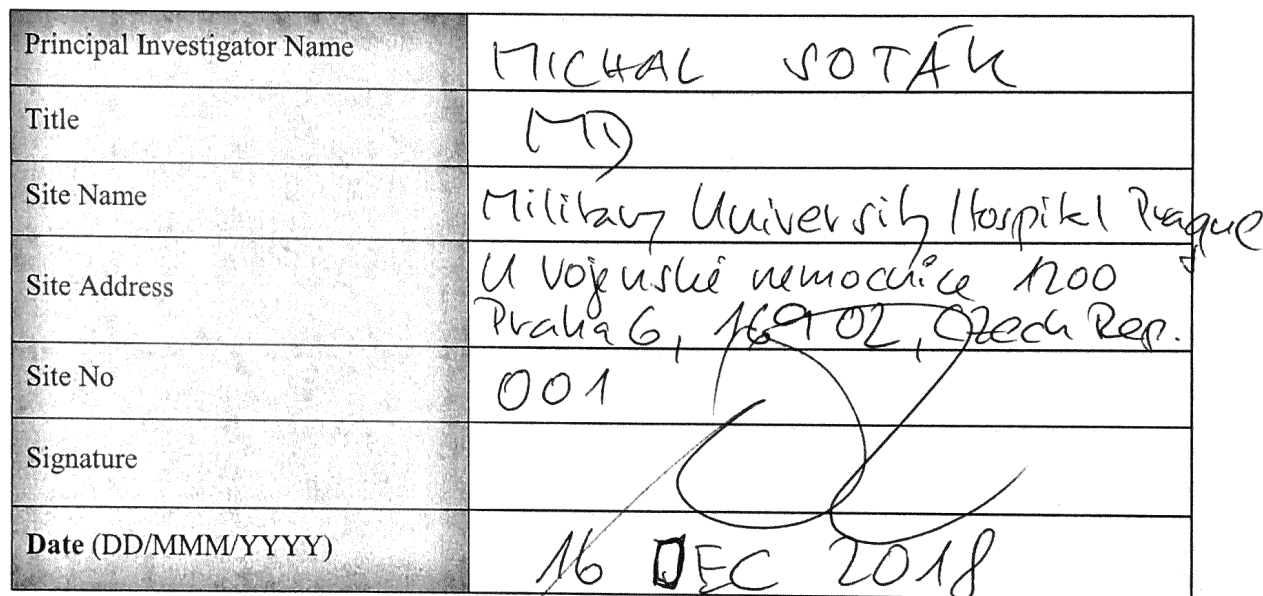 Principal Investigator Name MICHAL SOTÁK
Title MD
Site Name Military University Hospital Prague
Site Address U Vojenské nemocnice 1200
Praha 6, 16902, Czech Rep.
Site No 001
Signature
Date (DD/MMM/YYYY) 16 DEC 2018